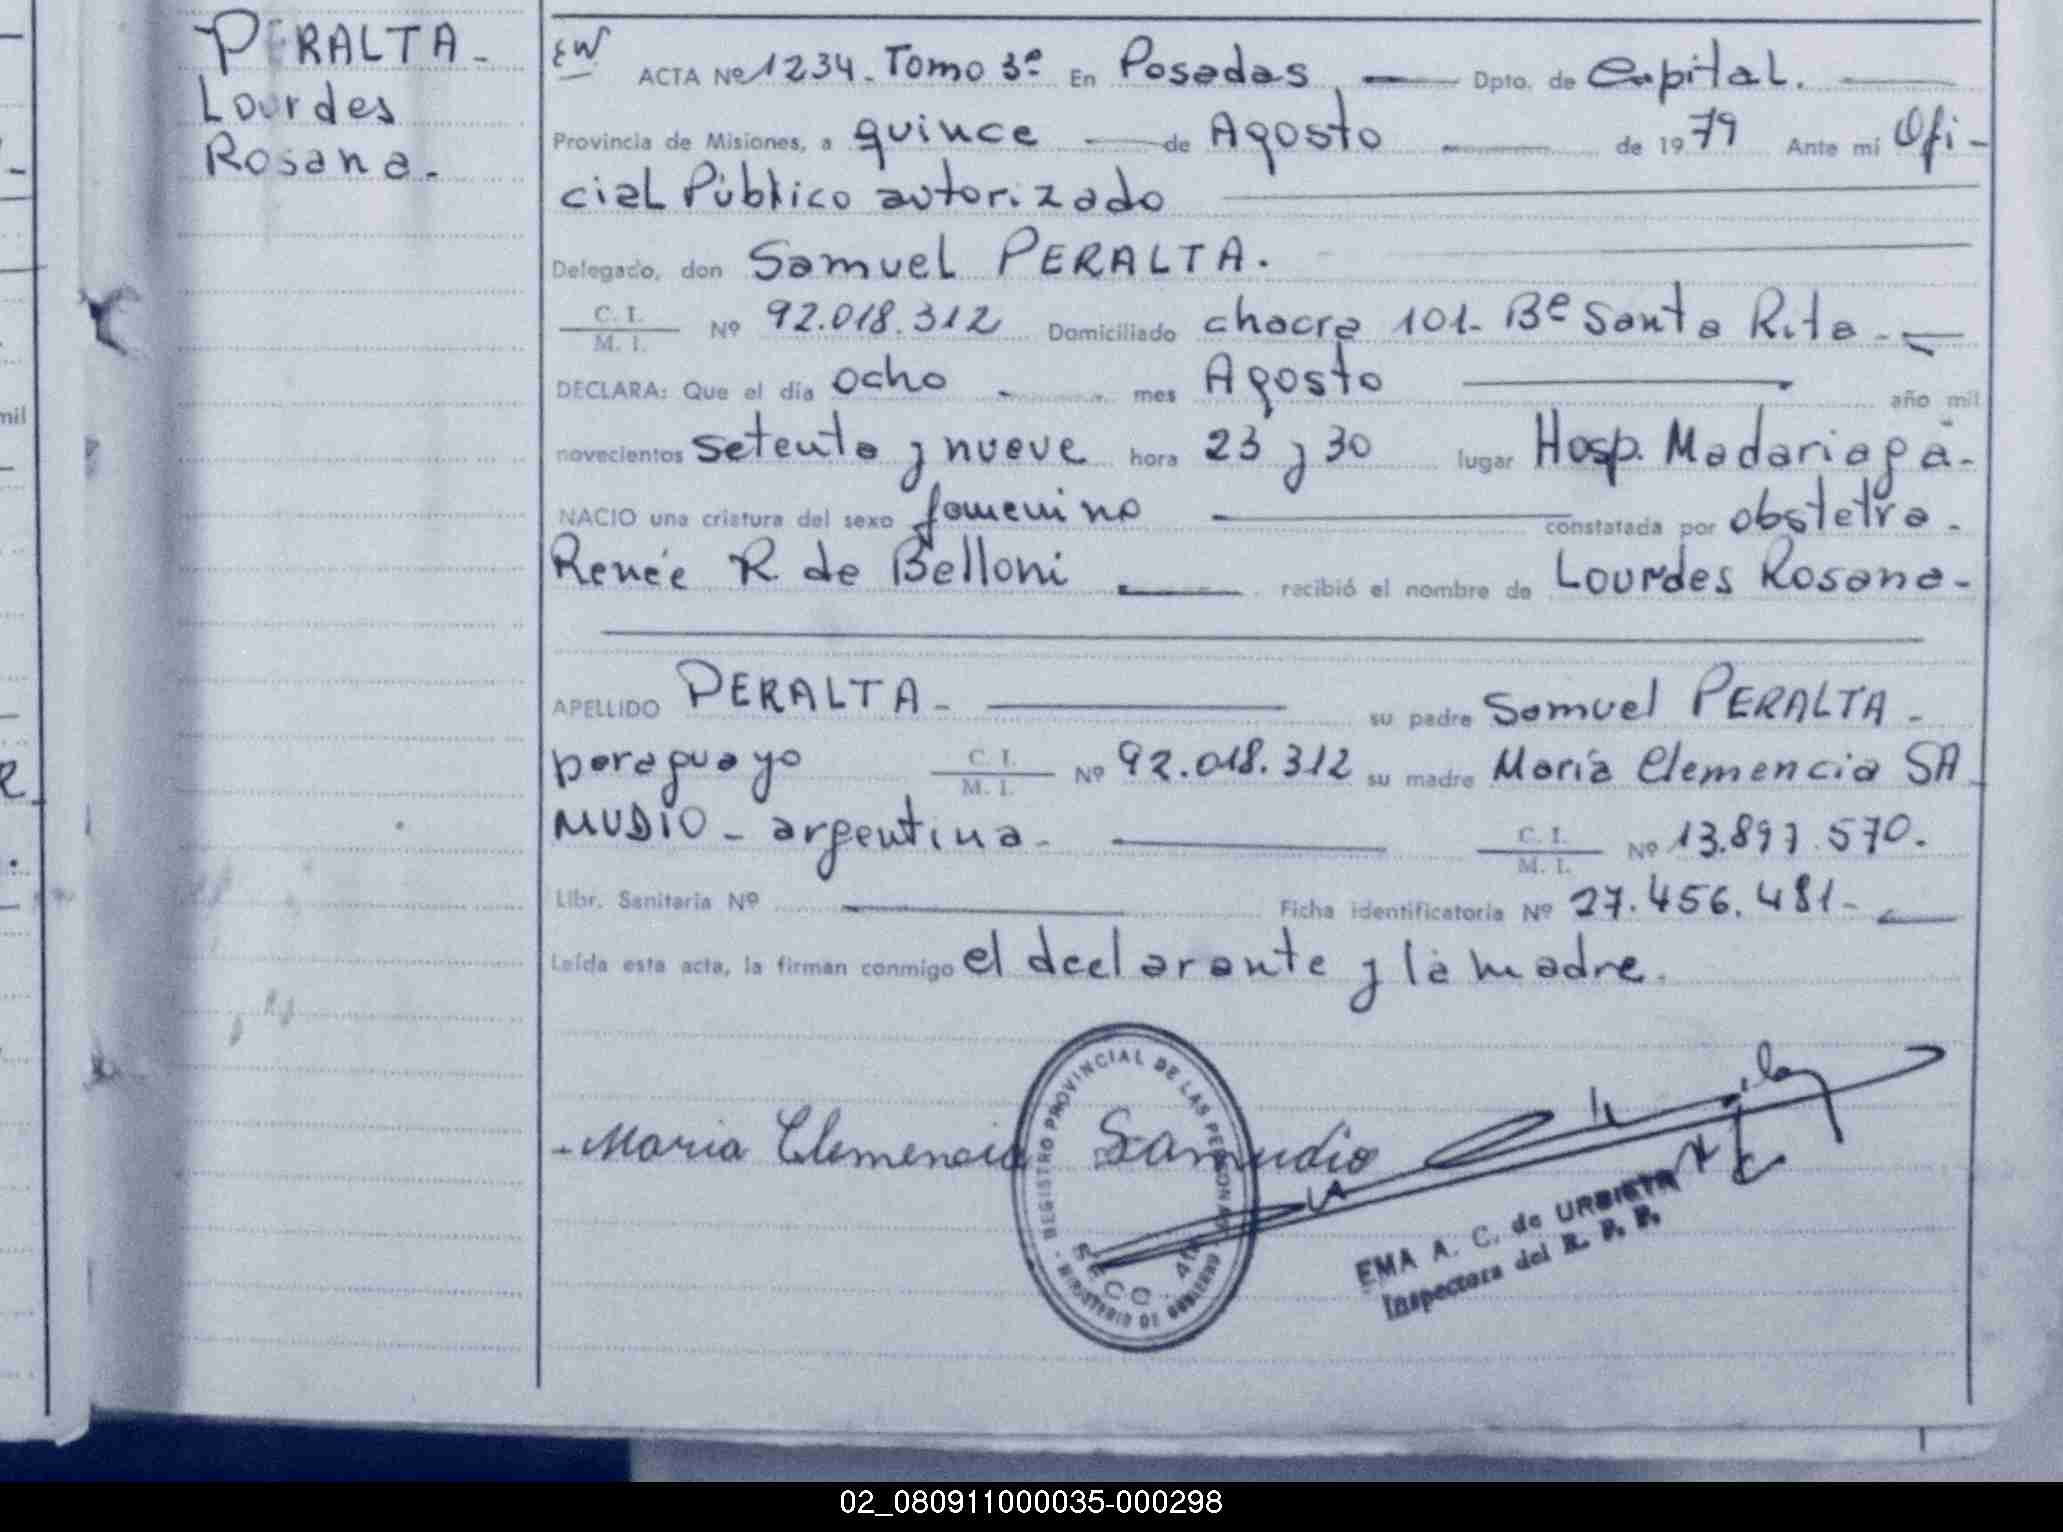 PERALTA-
Lourdes
Rosana-
ACTA Nº 1234. Tomo 3º En Posadas Dpto. de Capital.
Provincia de Misiones, a quince de Agosto de 1979 Ante mi Ofi-
cial Público autorizado
Delegado, don Samuel PERALTA.
C. I.
M. I.
Nº 92.018.312 Domiciliado chacra 101- Bº Santa Rita-
DECLARA: Que el día ocho mes Agosto año mil
novecientos setenta y nueve hora 23 y 30 lugar Hosp. Madariaga-
NACIO una criatura del sexo femenino constatada por obstetra-
Renée R. de Belloni recibió el nombre de Lourdes Rosana-
APELLIDO PERALTA- su padre Samuel PERALTA-
paraguayo C. I. M. I. Nº 92.018.312 su madre María Clemencia SA-
MUDIO- argentina- C. I. M. I. Nº 13.897.570.
Libr. Sanitaria Nº Ficha identificatoria Nº 27.456.481-
Leída esta acta, la firman conmigo el declarante y la madre.
-Maria Clemencia Samudio
REGISTRO PROVINCIAL DE LAS PERSONAS
MINISTERIO DE GOBIERNO
SECC.
EMA A. C. de URBIETA
Inspectora del R. P. P.
mil
02_080911000035-000298